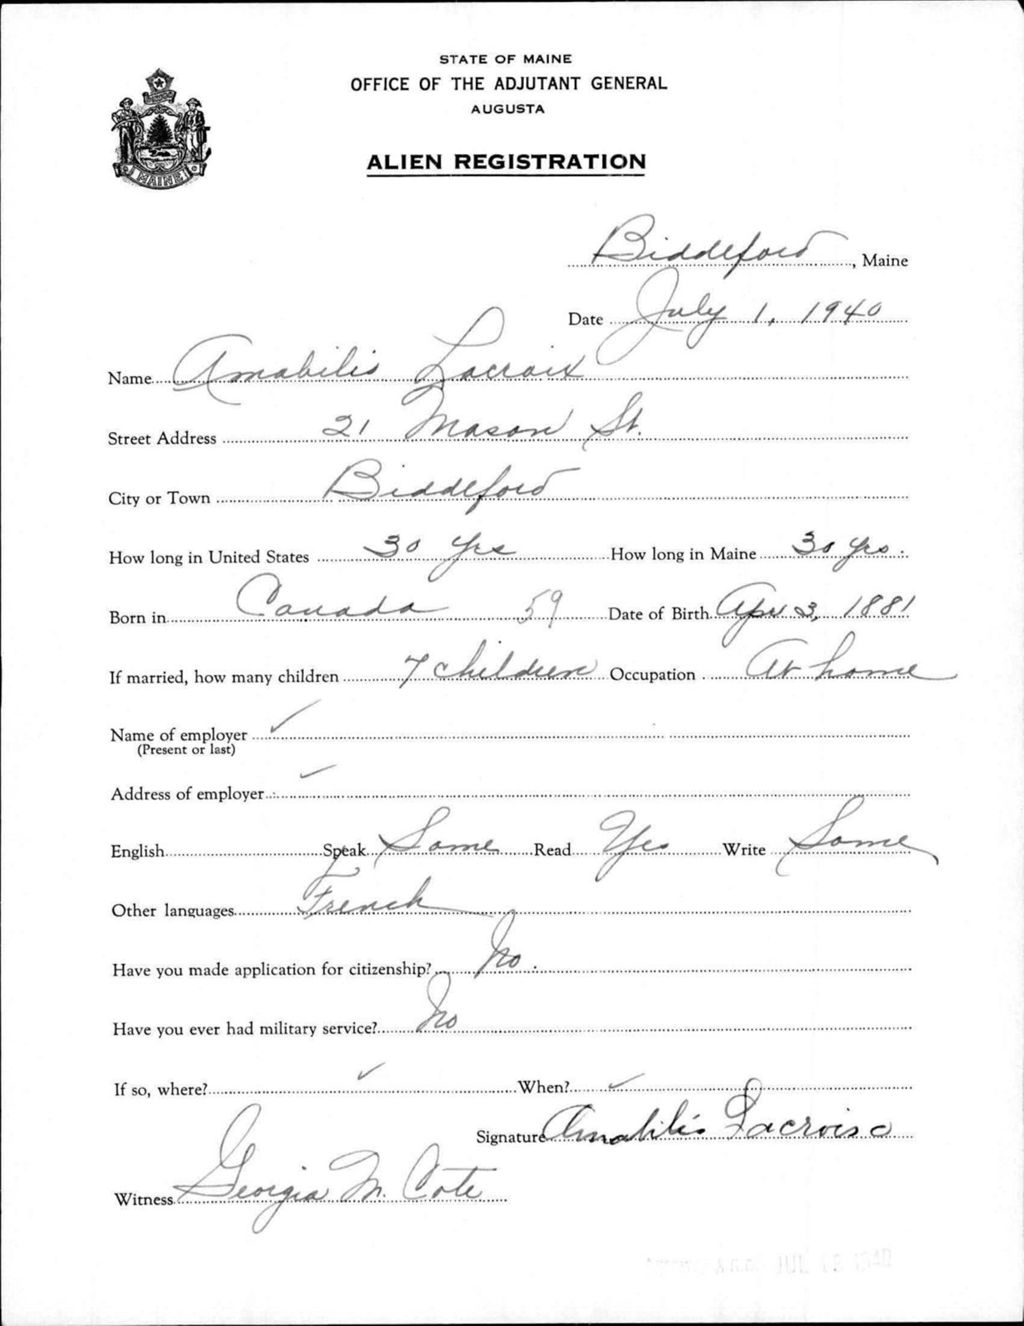 STATE OF MAINE
OFFICE OF THE ADJUTANT GENERAL
AUGUSTA
MAINE
ALIEN REGISTRATION
Biddeford, Maine
Date July 1, 1940
Name Amabilis Lacroix
Street Address 21 Mason St.
City or Town Biddeford
How long in United States 30 yrs How long in Maine 30 yrs.
Born in Canada 59 Date of Birth Apr 3, 1881
If married, how many children 7 children Occupation At home
Name of employer ✓
(Present or last)
Address of employer ✓
English Speak Some Read Yes Write Some
Other languages French
Have you made application for citizenship? No.
Have you ever had military service? No
If so, where? ✓ When? ✓
Signature Amabilis Lacroix
Witness Georgia M. Cote
JUL 02 1940